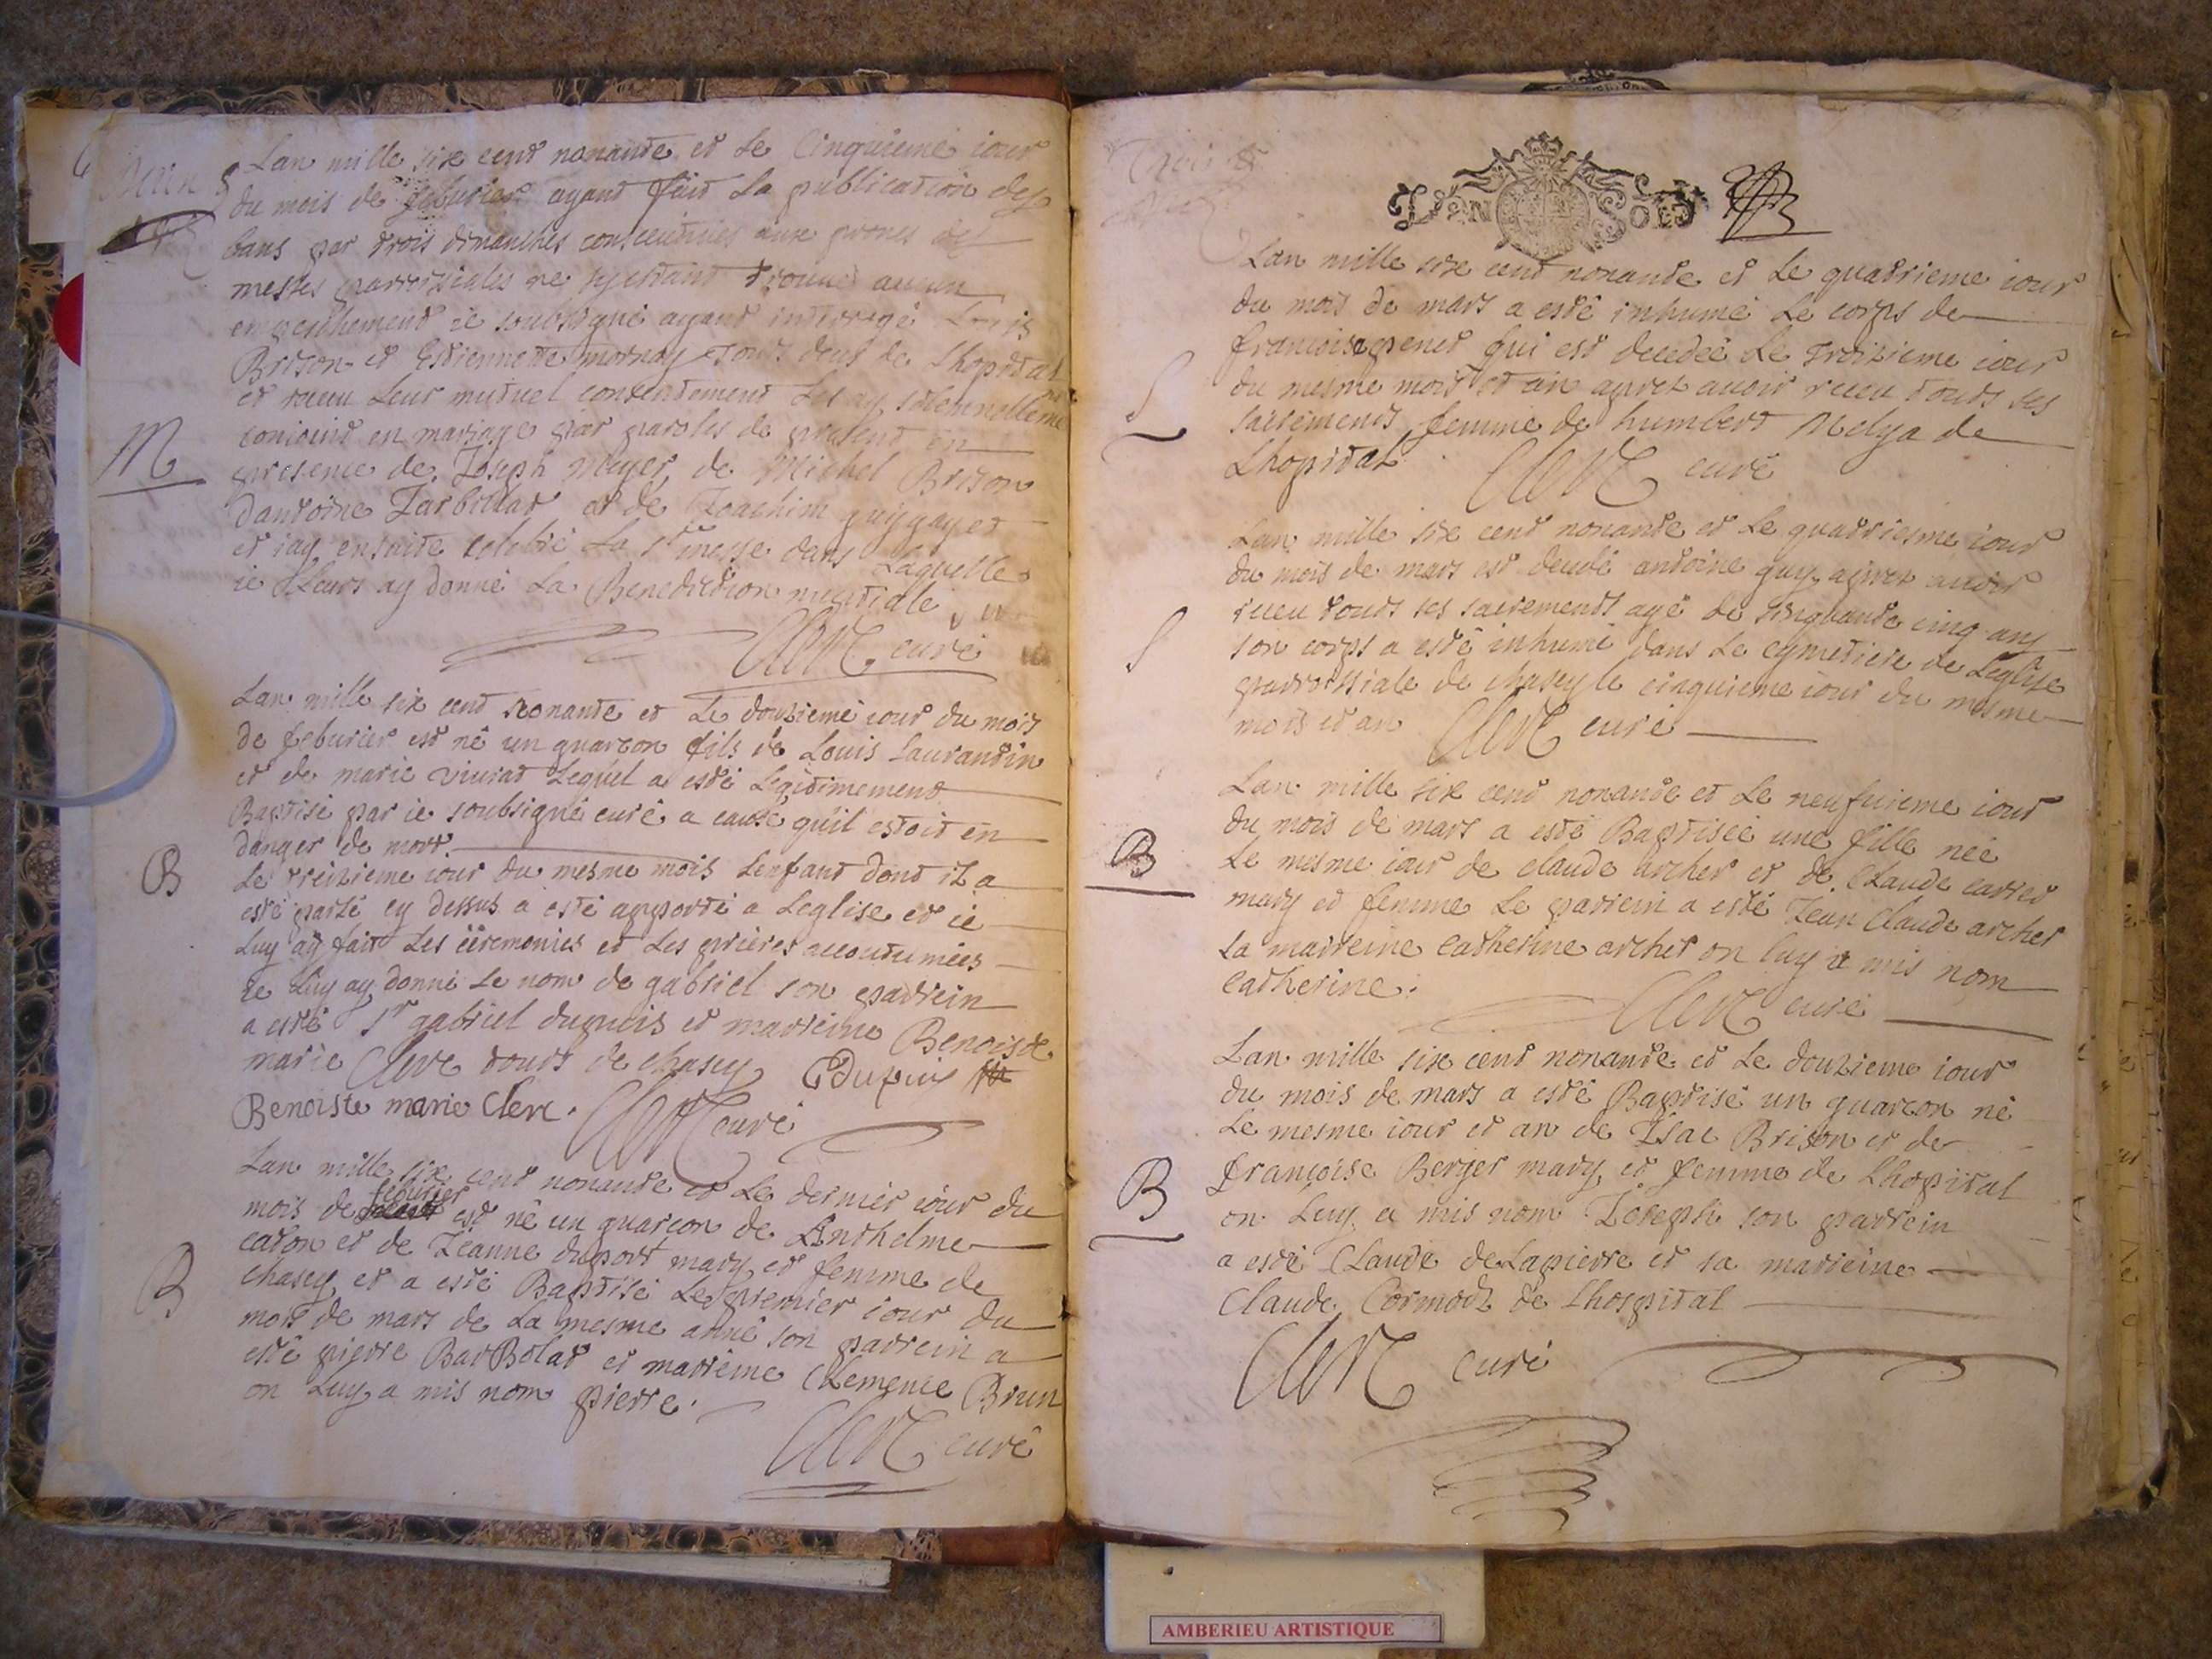 Lan mille six cent nonante et le Cinquieme iour
du mois de feburier ayant fait la publication des
bans par trois dimanches consecutives aux prones de
messes parroissiales ne sy estant trouué aucun
empeschement ie soubsigné ayant interrogé Louis
Brison et Estiennette mornay touts deus de Lhopital
et receu leur mutuel contentement les ay solennellemt
conioint en mariage par paroles de present en
presence de Ioseph muyer, de Michel Brison
dantoine Iarbillat et de Ioachim guygayet
et iay ensuite celebré la ste messe dans laquelle
ie leurs ay donné la Benediction nuptiale
Clerc curé
M
Lan mille six cent nonante et Le douzieme iour du mois
de feburier est né un guarcon fils de Louis Laurandin
et de marie viurat Lequel a esté Legitimement
Baptisé par ie soubsigné curé a cause quil estoit en
danger de mort.
B
Le treizieme iour du mesme mois Lenfant dont il a
esté parlé cy dessus a esté apporté a Leglise et ie
Luy ay fait Les ceremonies et Les prieres accoutumées
ie Luy ay donné Le nom de gabriel son parrein
a esté Sr gabriel dupuis et marreine Benoiste
marie Clerc touts de chasey GDupuis
Benoiste marie Clerc. Clerc curé
Lan mille six cent nonante et Le dernier iour du
mois de feburier est né un guarcon de Anthelme
caton et de Ieanne duport mary et femme de
chasey et a esté Baptisé Le premier iour du
B
mois de mars de La mesme anné son parrein a
esté pierre BarBolat et marreine Clemence Brun
on Luy a mis nom pierre.
Clerc curé
SOLS
Lan mille six cent nonante et Le quatrieme iour
du mois de mars a esté inhumé Le corps de
francoise penet qui est decedeé Le troizieme iour
du mesme mois et an apres auoir receu touts ses
sacrements femme de humbert Melya de
Lhopital Clerc curé
S
Lan mille six cent nonante et Le quatriesme iour
du mois de mars est decedé antoine guy apres auoir
receu touts ses sacrements agé de cinquante cinq ans
son corps a esté inhumé dans Le cymetiere de Leglise
parroissiale de chasey le cinquieme iour du mesme
mois et an Clerc curé
S
Lan mille six cent nonante et Le neufuieme iour
du mois de mars a esté Baptiseé une fille neé
Le mesme iour de claude archer et de Claude carrer
mary et femme Le parrein a esté Iean Claude archer
La marreine catherine archer on luy a mis nom
catherine.
Clerc curé
B
Lan mille six cent nonante et Le douzieme iour
du mois de mars a esté Baptisé un guarcon né
Le mesme iour et an de Isac Brison et de
françoise Berger mary et femme de Lhopital
B
on Luy a mis nom Ioseph son parrein
a esté Claude deLapierre et sa marreine
Claude Cormodz de Lhospital
Clerc curé
AMBERIEU ARTISTIQUE